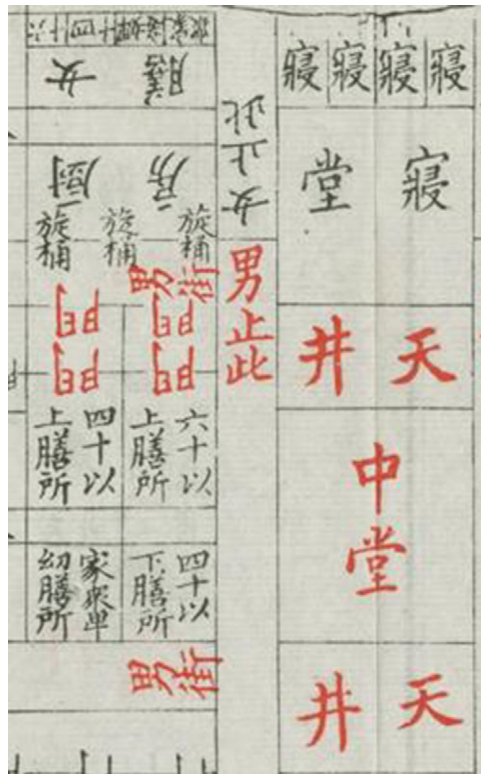 寢寢寢寢
寢堂
天井
中堂
天井
女止此
男止此
女膳
厨房
旋桶
旋桶
旋桶
男街
門門
門門
六十以上膳所
四十以上膳所
四十以下膳所
家衆卑幼膳所
男街